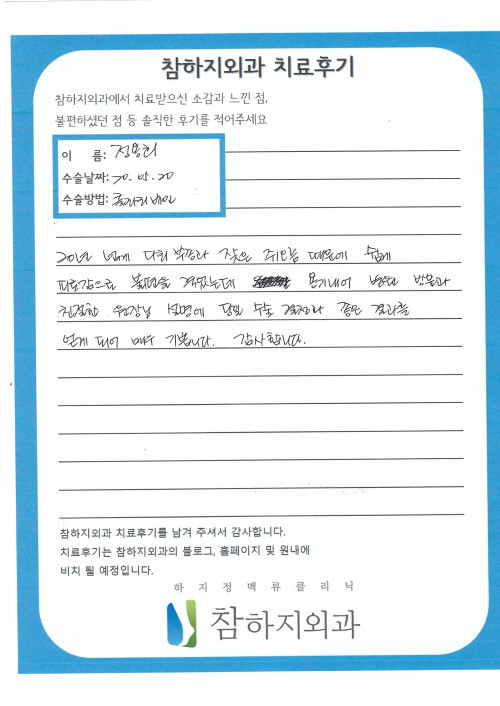 참하지외과 치료후기
참하지외과에서 치료받으신 소감과 느낀 점,
불편하셨던 점 등 솔직한 후기를 적어주세요
이 름:
수술날짜:
수술방법:
20년 넘게 다리 부종과 잦은 쥐오름 때문에 쉽게
피로감으로 불편을 겪었는데 용기내어 병원 방문과
친절한 원장님 설명에 당일 수술 결정하고 좋은 결과를
얻게 되어 매우 기쁩니다. 감사합니다.
참하지외과 치료후기를 남겨 주셔서 감사합니다.
치료후기는 참하지외과의 블로그, 홈페이지 및 원내에
비치 될 예정입니다.
하지정맥류클리닉
참하지외과